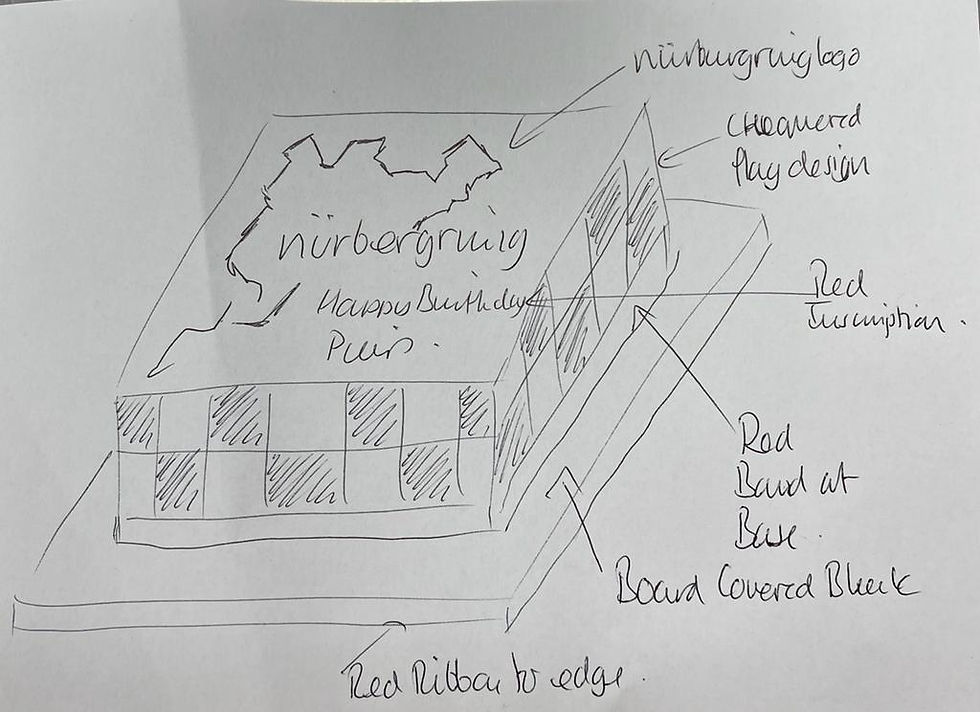 nürburgring logo
Chequered
flag design
nürbergring
Happy Birthday
Red
Inscription.
Red
Band at
Base.
Board Covered Black
Red Ribbon to edge.